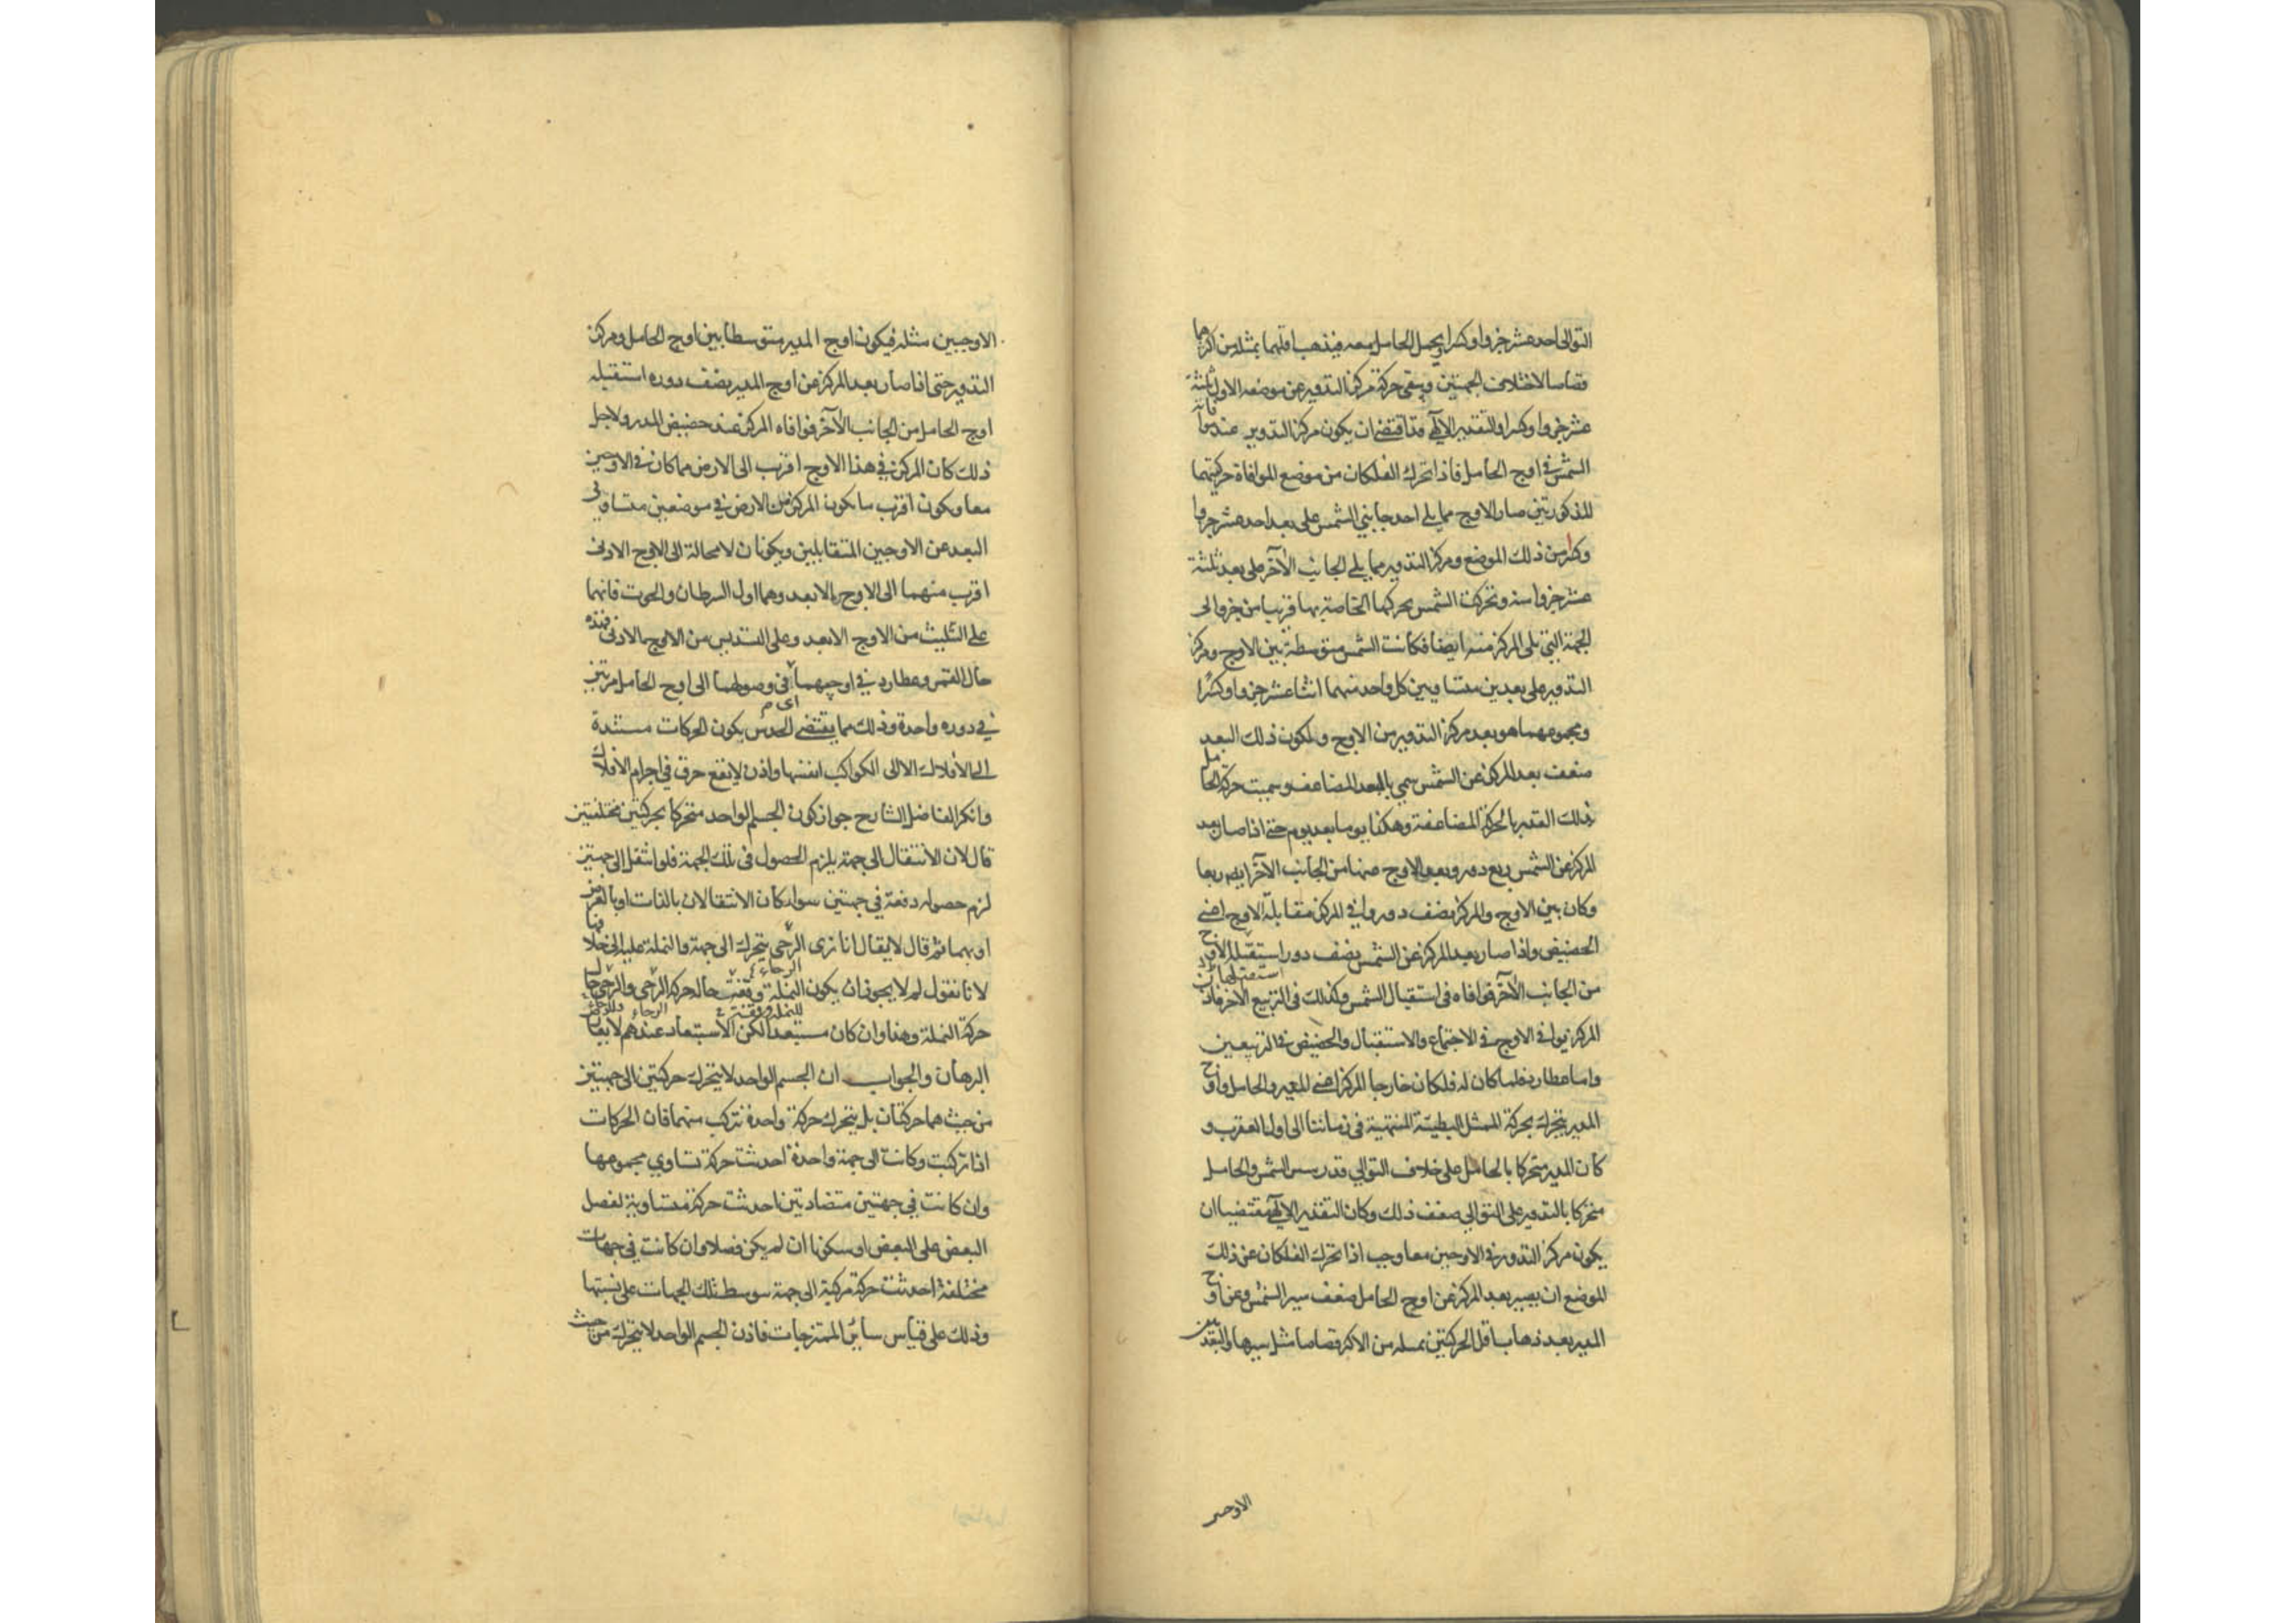 التوالى احد عشر جزوا وكسرا يحمل الحامل معه فيذهب اقلهما بمثله من اكثرهما
قصاصا لاختلاف الجهتين ويبقى حركة مركز التدوير عن موضعه الاول ثلثة
عشر جزوا وكسرا والتقدير الالهى قد اقتضى ان يكون مركز التدوير عند موافاته
الشمس فى اوج الحامل فاذا تحرك الفلكان من موضع الموافاة حركتيهما
المذكورتين صار الاوج مما يلى احد جانبي الشمس على بعد احد عشر جزوا
وكسر من ذلك الموضع ومركز التدوير مما يلى الجانب الآخر على بعد ثلثة
عشر جزوا منه وتحركت الشمس بحركتها الخاصة بها قريبا من جزو الى
الجهة التى تلى المركز منه ايضا فكانت الشمس متوسطة بين الاوج ومركز
التدوير على بعدين متساويين كل واحد منهما اثنا عشر جزوا وكسرا
ومجموعهما هو بعد مركز التدوير من الاوج ولكون ذلك البعد
ضعف بعد المركز عن الشمس سمي بالبعد المضاعف وسميت حركة الحامل
بذلك القدر بالحركة المضاعفة وهكذا يوما بعد يوم حتى اذا صار بعد
المركز عن الشمس ربع دور وبعد الاوج عنها من الجانب الآخر ايضا ربعا
وكان بين الاوج والمركز نصف دور وافى المركز مقابلة الاوج اعنى
الحضيض واذا صار بعد المركز عن الشمس نصف دور استقبله الاوج
من الجانب الآخر فوافاه فى استقبال الشمس وكذلك فى التربيع الآخر فاذن
المركز يوافى الاوج فى الاجتماع والاستقبال والحضيض فى التربيعين
واما عطارد فلما كان له فلكان خارجا المركز اعنى المدير والحامل واوج
المدير يتحرك بحركة الممثل البطيئة المنتهية فى زماننا الى اول العقرب و
كان المدير متحركا بالحامل على خلاف التوالي قدر سير الشمس والحامل
متحركا بالتدوير على التوالي ضعف ذلك وكان التقدير الالهى مقتضيا ان
يكون مركز التدوير فى الاوجين معا وجب اذا تحرك الفلكان عن ذلك
الموضع ان يصير بعد المركز عن اوج الحامل ضعف سير الشمس وعن اوج
المدير بعد ذهاب اقل الحركتين بمثله من الاكثر قصاصا مثل سيرها والبعد بين
الاوجين
الاوجين مثله فيكون اوج المدير متوسطا بين اوج الحامل ومركز
التدوير حتى اذا صار بعد المركز عن اوج المدير نصف دوره استقبله
اوج الحامل من الجانب الآخر فوافاه المركز عند حضيض المدير ولاجل
ذلك كان المركز فى هذا الاوج اقرب الى الارض مما كان فى الاوجين
معا ويكون اقرب ما يكون المركز من الارض فى موضعين متساوى
البعد عن الاوجين المتقابلين ويكونان لا محالة الى الاوج الادنى
اقرب منهما الى الاوج الابعد وهما اول السرطان والحوت فانهما
على التثليث من الاوج الابعد وعلى التسديس من الاوج الادنى فهذه
حال القمر وعطارد فى اوجيهما فى وصولهما الى اوج الحامل مرتين
فى دوره واحدة وذلك مما يقتضى الحدس بكون الحركات مستندة
الى الافلاك لا الى الكواكب انفسها واذن لا يقع خرق فى اجرام الافلاك
وانكر الفاضل الشارح جواز كون الجسم الواحد متحركا بحركتين مختلفتين
قال لان الانتقال الى جهة يلزم الحصول فى تلك الجهة فلو انتقل الى جهتين
لزم حصوله دفعة فى جهتين سواء كان الانتقالان بالذات او بالعرض
او بهما ثم قال لا يقال انا نرى الرحى يتحرك الى جهة والنملة عليه الى خلافها
لانا نقول لم لا يجوز ان يكون النملة وقفت حال حركة الرحى والرحى حال
حركة النملة وهذا وان كان مستبعدا لكن الاستبعاد عندهم لا يعارض
البرهان والجواب ان الجسم الواحد لا يتحرك حركتين الى جهتين
من حيث هما حركتان بل يتحرك حركة واحدة تتركب منهما فان الحركات
اذا تركبت وكانت الى جهة واحدة احدثت حركة تساوي مجموعها
وان كانت فى جهتين متضادتين احدثت حركة مساوية لفضل
البعض على البعض او سكونا ان لم يكن فضلا وان كانت فى جهات
مختلفة احدثت حركة مركبة الى جهة توسط تلك الجهات على نسبتها
وذلك على قياس سائر الممتزجات فاذن الجسم الواحد لا يتحرك من حيث